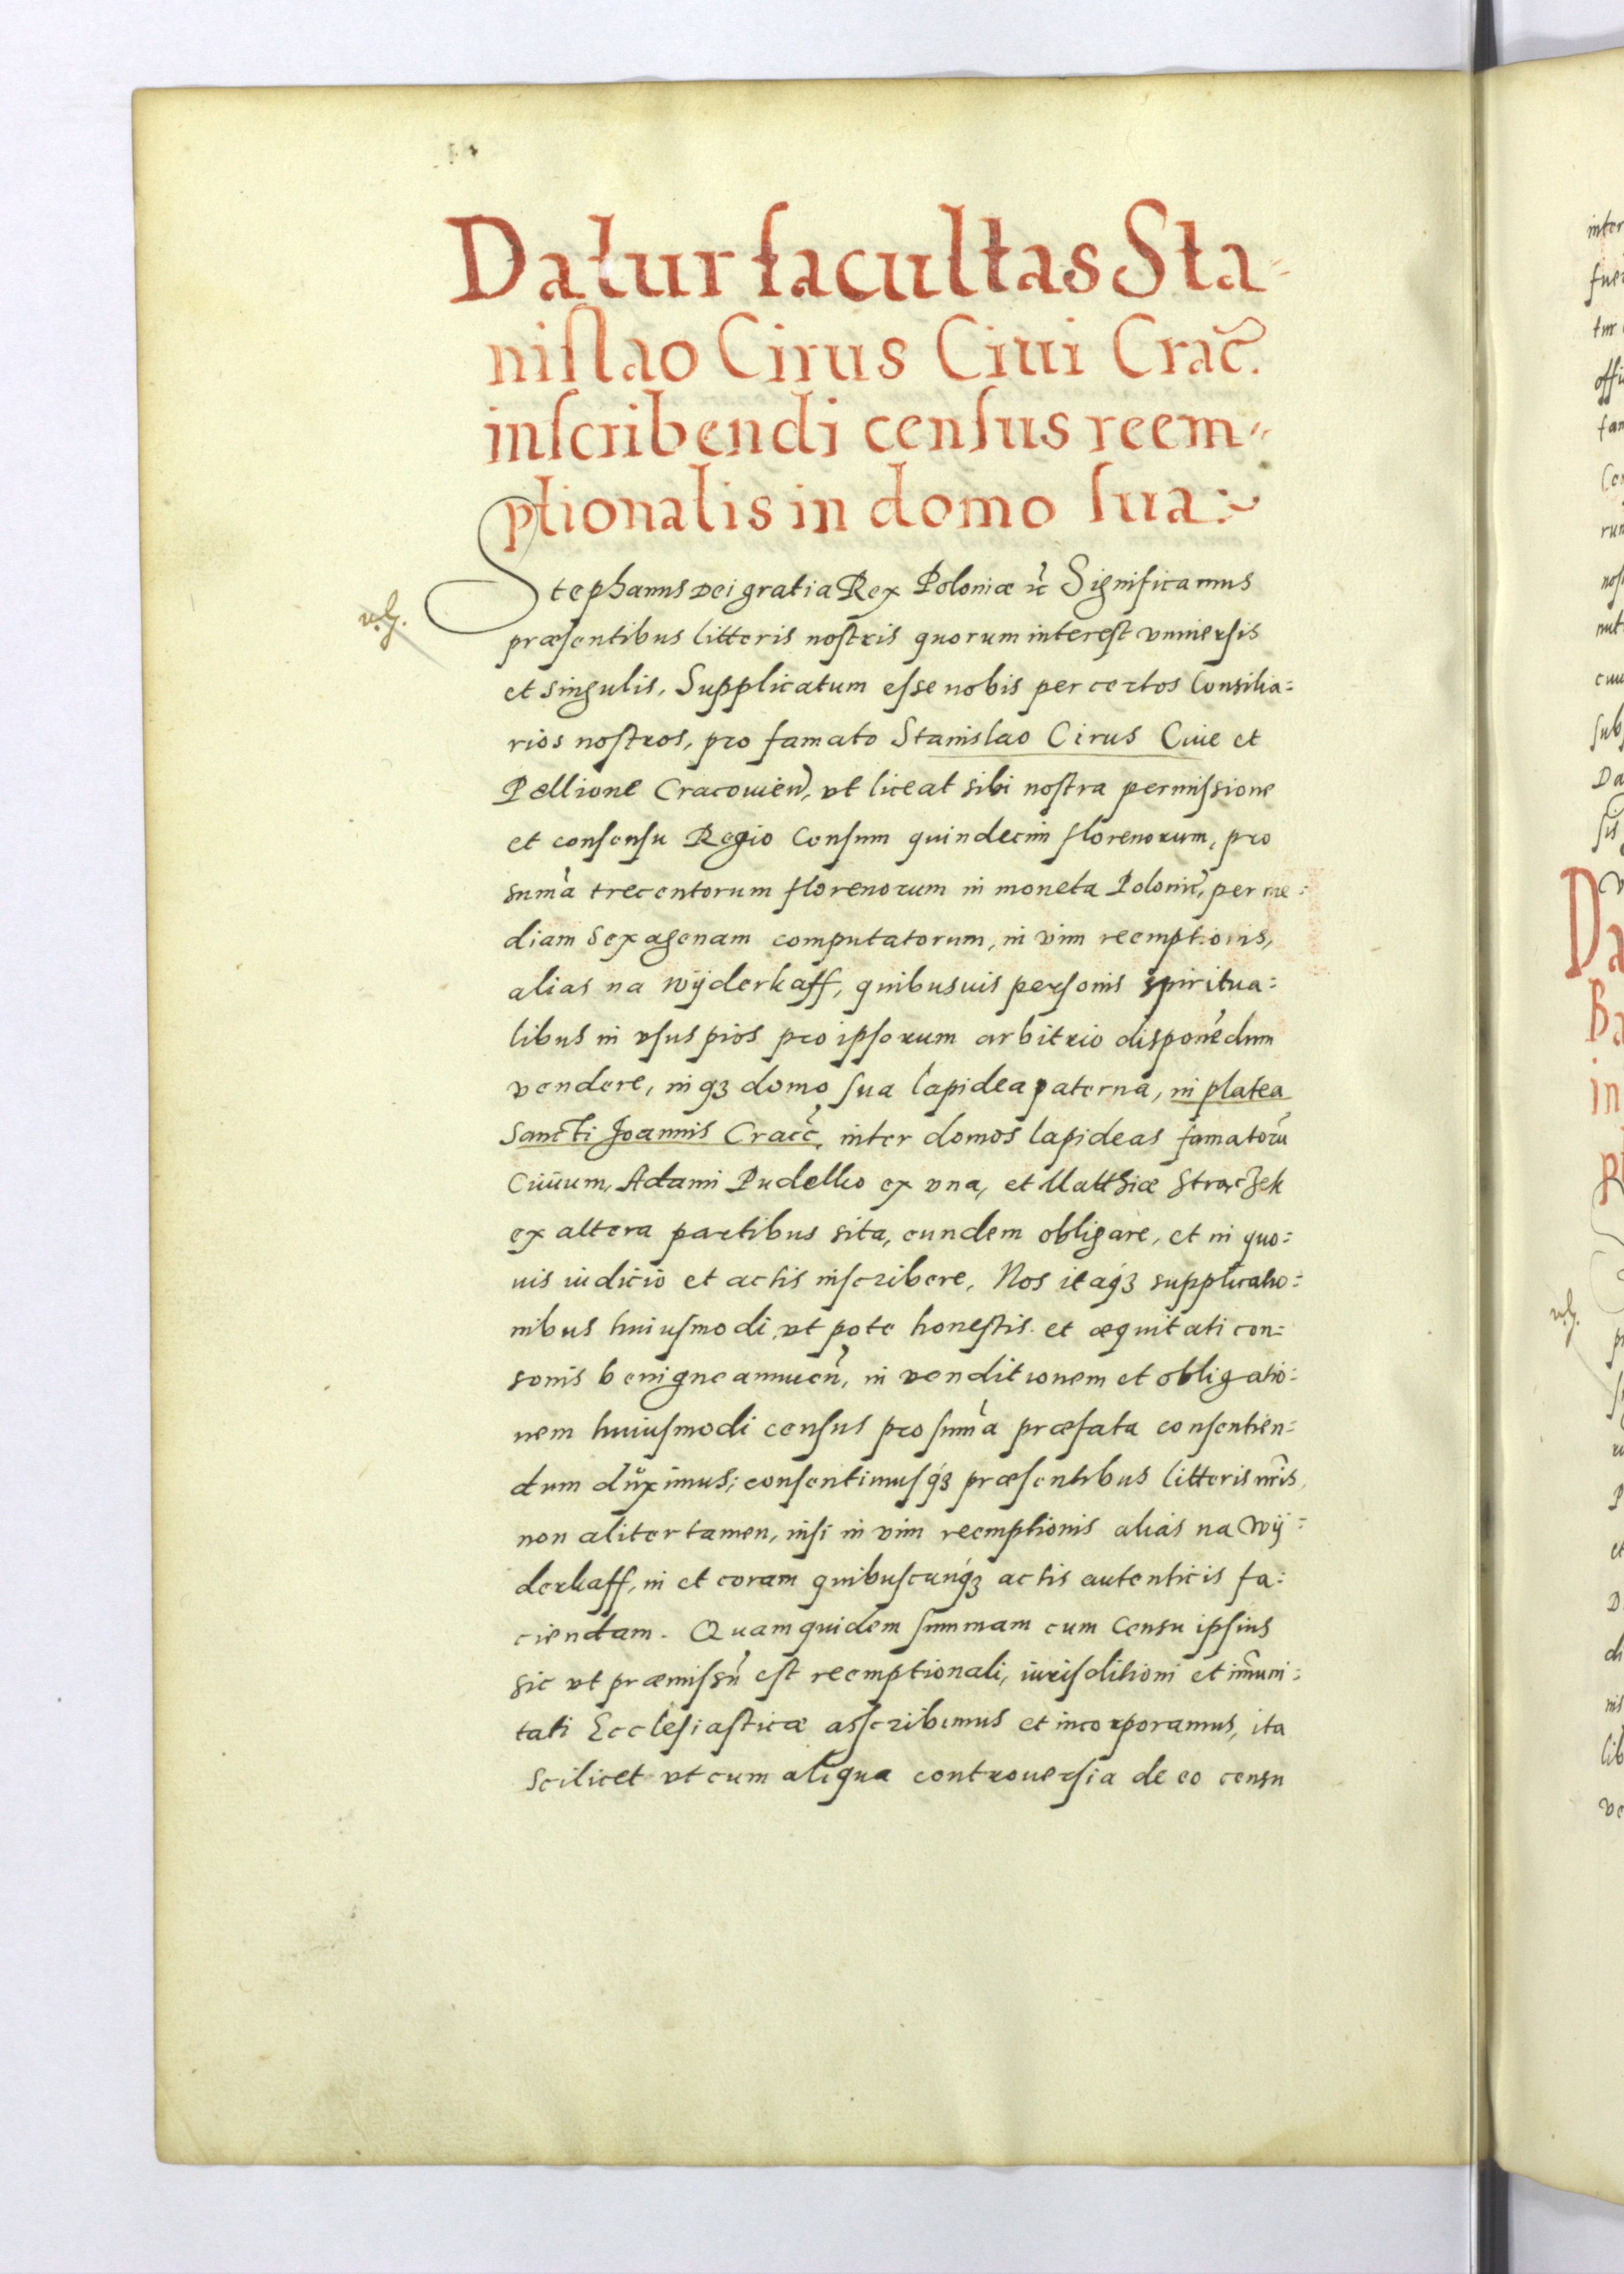 Datur facultas Sta-
niſlao Cirus Ciui Crac̃.
inſcribendi cenſus reem-
ptionalis in domo ſua:~
Stephanus Dei gratia Rex Poloniæ ⁊c̃ Significamus
præſentibus litteris noſtris quorum intereſt vniuerſis
et singulis, Supplicatum eſse nobis per certos Consilia:
rios noſtros, pro famato Stanislao Cirus Ciue et
Pellione Cracouien̄, vt liceat sibi noſtra permiſsione
et conſenſu Regio Censum quindecim florenorum, pro
sum̃a trecentorum florenorum in moneta Polonic̃, per me:
diam sexagenam computatorum, in vim reemptionis,
alias na wÿderkaff, quibusuis perſonis spiritua:
libus in vſus pios pro ipſorum arbitrio disponẽdum
vendere, inqꝫ domo ſua lapidea paterna, in platea
Sancti Joannis Cracc̃, inter domos lapideas famatorũ
Ciuium, Adami Pudelko ex vna, et Matthiæ Straczek
ex altera partibus sita, eundem obligare, et in quo:
uis iudicio et actis inſcribere, Nos itaqꝫ supplicatio:
nibus huiuſmodi, vt pote honeſtis et æquitati con:
sonis benigne annuen̄, in venditionem et obligatio:
nem huiuſmodi cenſus pro sum̃a præfata conſentien:
dum dŭximus; conſentimuſqꝫ præſentibus litteris nr̃is,
non aliter tamen, niſi in vim reemptionis alias na wÿ:
derkaff, in et coram quibuſcunqꝫ actis autenticis fa:
ciendam. Quamquidem ſummam cum Censu ipſius
sic vt præmiſsũ eſt reemptionali, iuriſditioni et im̃uni:
tati Eccleſiaſticæ aſscribimus et incorporamus, ita
scilicet vt cum aliqua controuerſia de eo censu